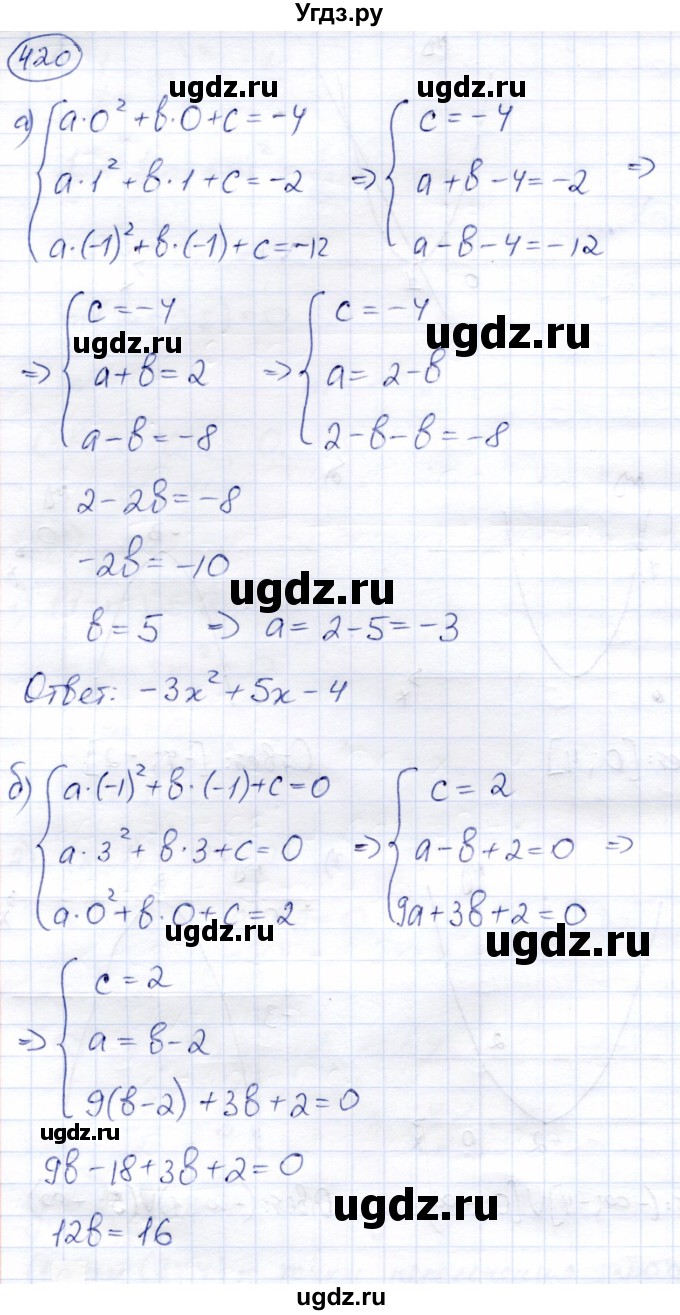 Угдз.ру
420
ugdz.ru ugdz.ru
а) { a·0² + в·0 + c = -4 { c = -4
a·1² + в·1 + c = -2 => a + в - 4 = -2 =>
a·(-1)² + в·(-1) + c = -12 a - в - 4 = -12
{ c = -4 { c = -4
ugdz.ru ugdz.ru
=> a + в = 2 => a = 2 - в
a - в = -8 2 - в - в = -8
2 - 2в = -8
-2в = -10
ugdz.ru
в = 5 => a = 2 - 5 = -3
Ответ: -3x² + 5x - 4
б) { a·(-1)² + в·(-1) + c = 0 { c = 2
a·3² + в·3 + c = 0 => a - в + 2 = 0 =>
a·0² + в·0 + c = 2 9a + 3в + 2 = 0
ugdz.ru ugdz.ru
{ c = 2
=> a = в - 2
9(в - 2) + 3в + 2 = 0
ugdz.ru
9в - 18 + 3в + 2 = 0
ugdz.ru
12в = 16
ugdz.ru